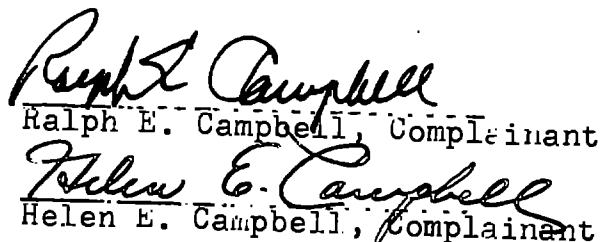 Ralph E Campbell
Ralph E. Campbell, Complainant
Helen E. Campbell
Helen E. Campbell, Complainant